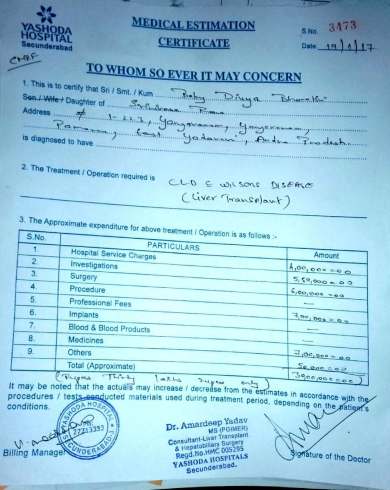 YASHODA
HOSPITAL
Secunderabad
MEDICAL ESTIMATION
CERTIFICATE
S.No. 3473
Date 19/1/17
TO WHOM SO EVER IT MAY CONCERN
1. This is to certify that Sri / Smt. / Kum Baby Divya
Son / Wife / Daughter of
Address
is diagnosed to have
2. The Treatment / Operation required is CLD WILSONS DISEASE
(Liver Transplant)
3. The Approximate expenditure for above treatment / Operation is as follows :-
S.No. PARTICULARS Amount
1. Hospital Service Charges 4,00,000=00
2. Investigations 5,50,000=00
3. Surgery 6,00,000=00
4. Procedure
5. Professional Fees 7,00,000=00
6. Implants
7. Blood & Blood Products
8. Medicines 7,00,000=00
9. Others 50,000=00
Total (Approximate) 30,00,000=00
(Rupees Thirty lakhs rupees only)
It may be noted that the actuals may increase / decrease from the estimates in accordance with the
procedures / tests conducted materials used during treatment period, depending on the patient's
conditions.
YASHODA HOSPITAL
27713333
SECUNDERABAD
Billing Manager
Dr. Amardeep Yadav
MS (PGIMER)
Consultant-Liver Transplant
& Hepatobiliary Surgery
Regd.No.HMC 005295
YASHODA HOSPITALS
Secunderabad.
Signature of the Doctor